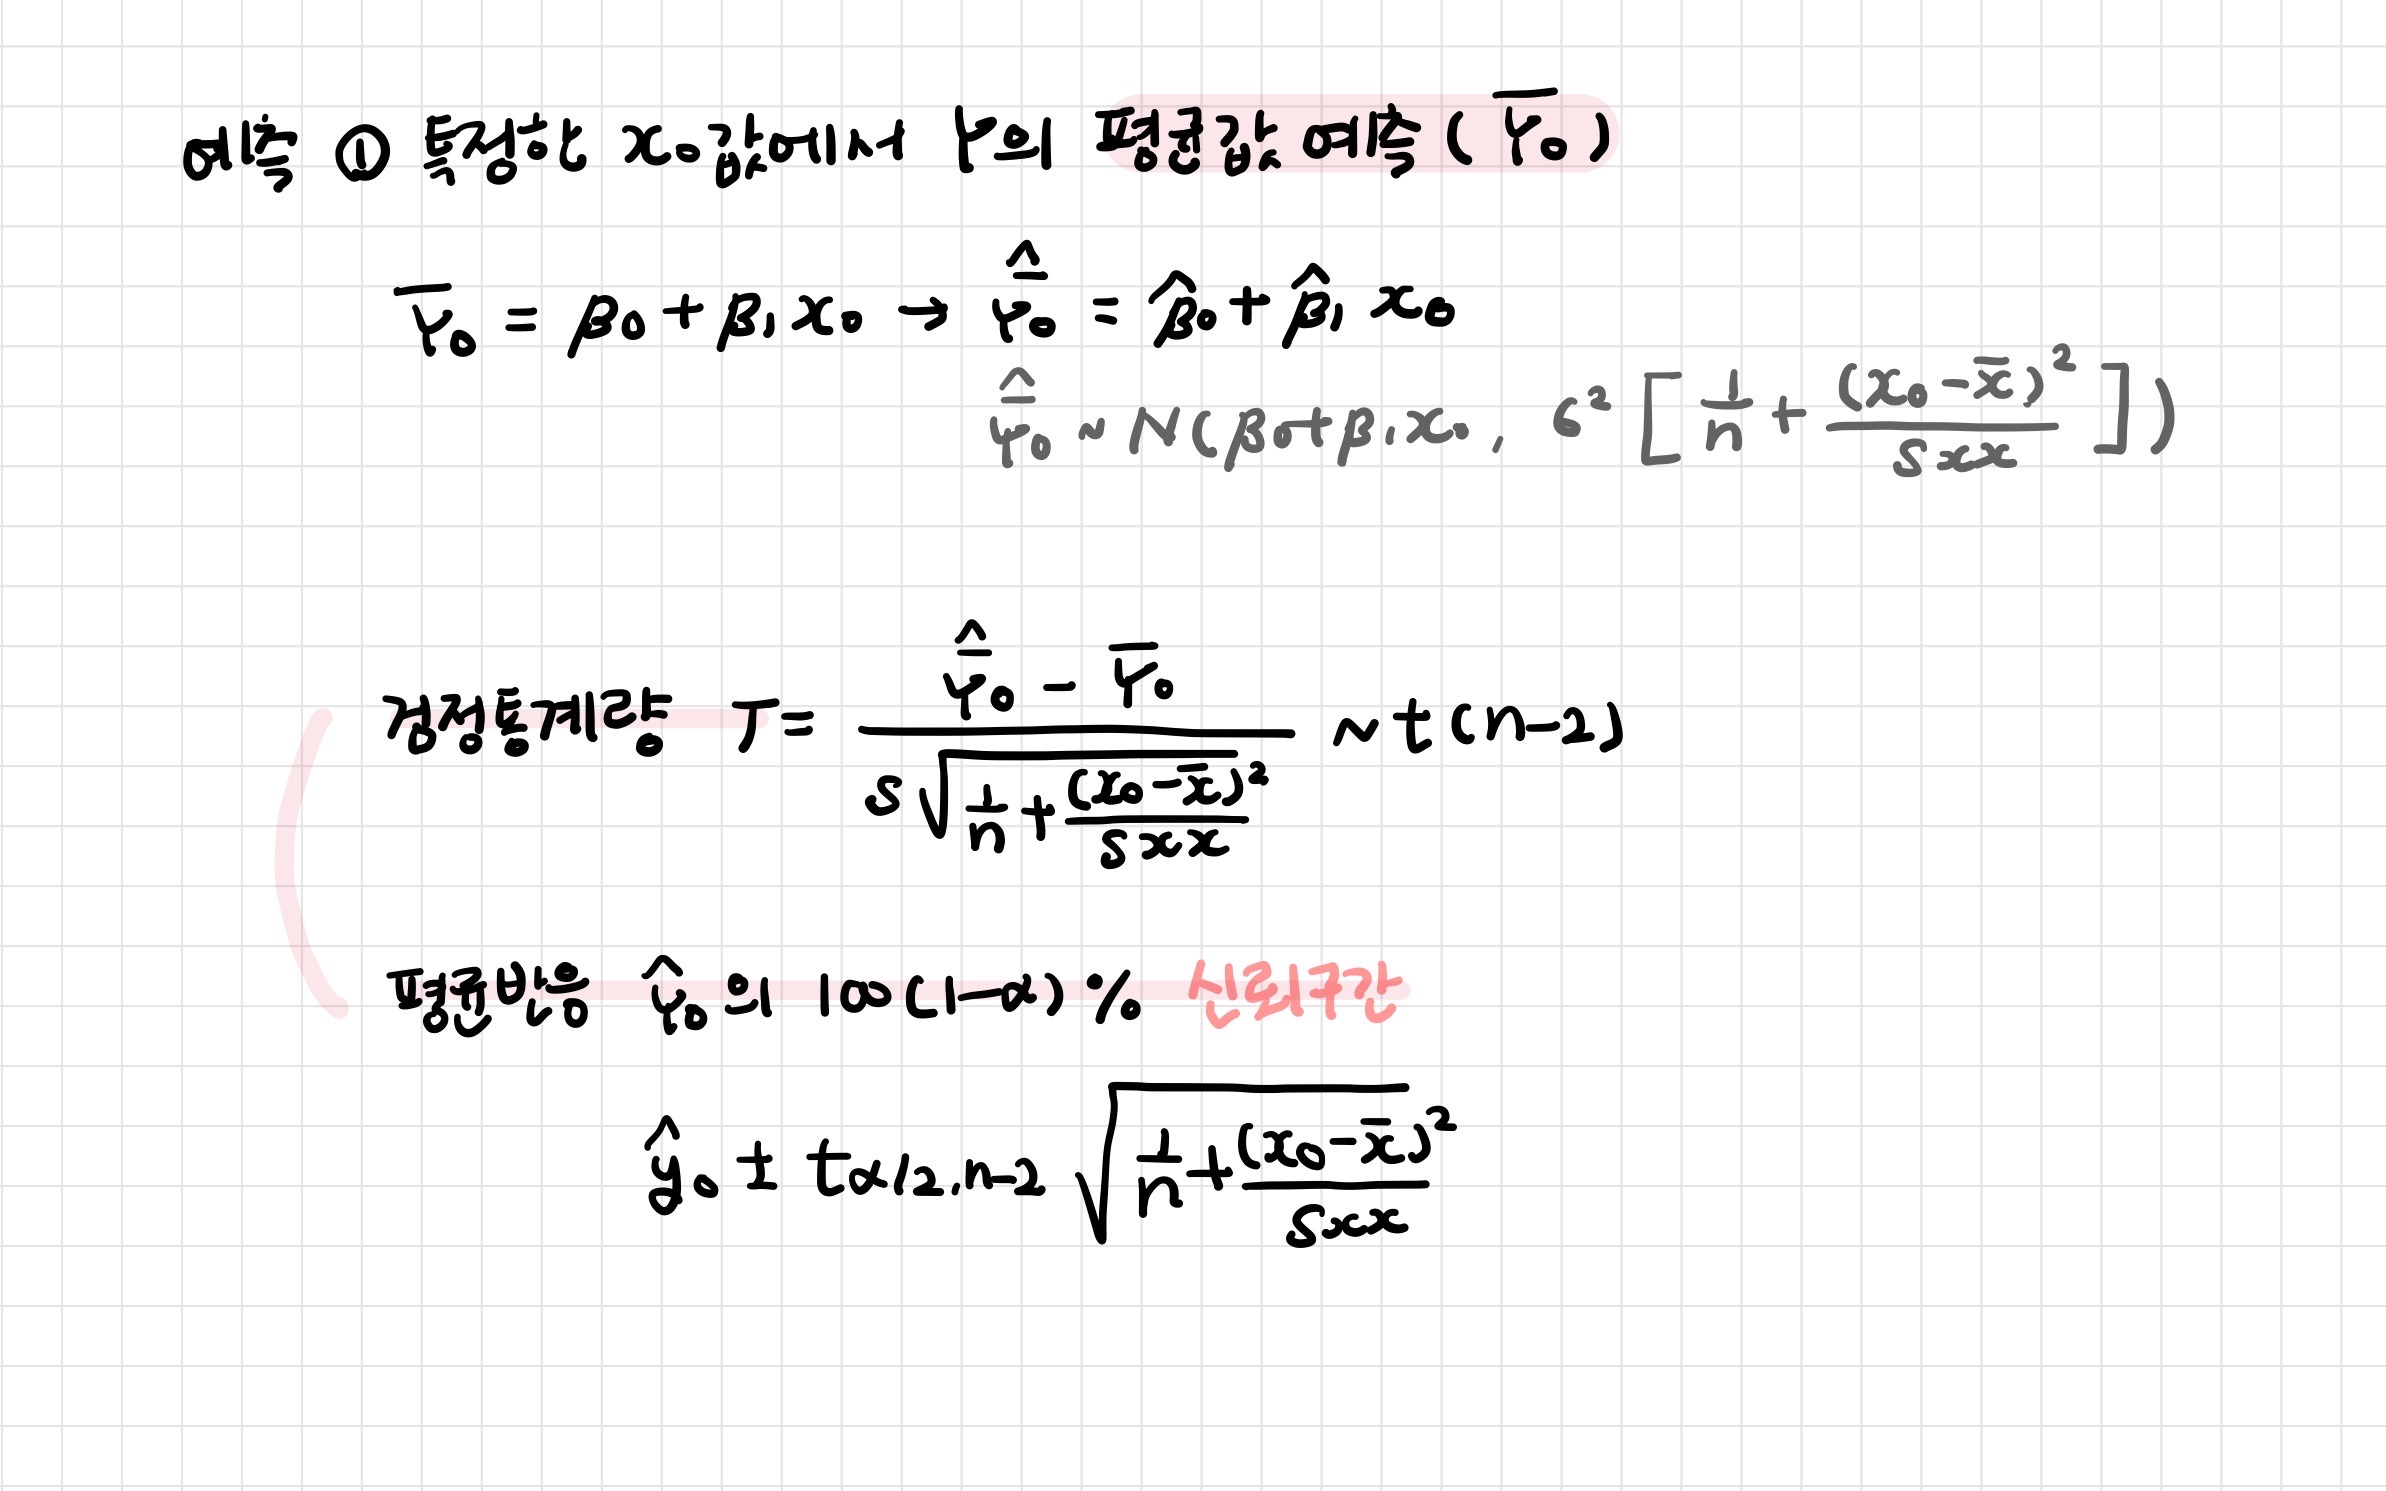 예측 ① 특정한 x₀값에서 Y의 평균값 예측 (Y̅₀)
Y̅₀ = β₀ + β₁x₀ → Y̅̂₀ = β̂₀ + β̂₁ x₀
Y̅̂₀ ~ N(β₀+β₁x₀, σ² [ 1/n + (x₀-x̅)²/Sxx ])
검정통계량 T = (Y̅̂₀ - Y̅₀) / (S √(1/n + (x₀-x̅)²/Sxx)) ~ t(n-2)
평균반응 Ŷ₀의 100(1-α)% 신뢰구간
ŷ₀ ± tα/2,n-2 √(1/n + (x₀-x̅)²/Sxx)